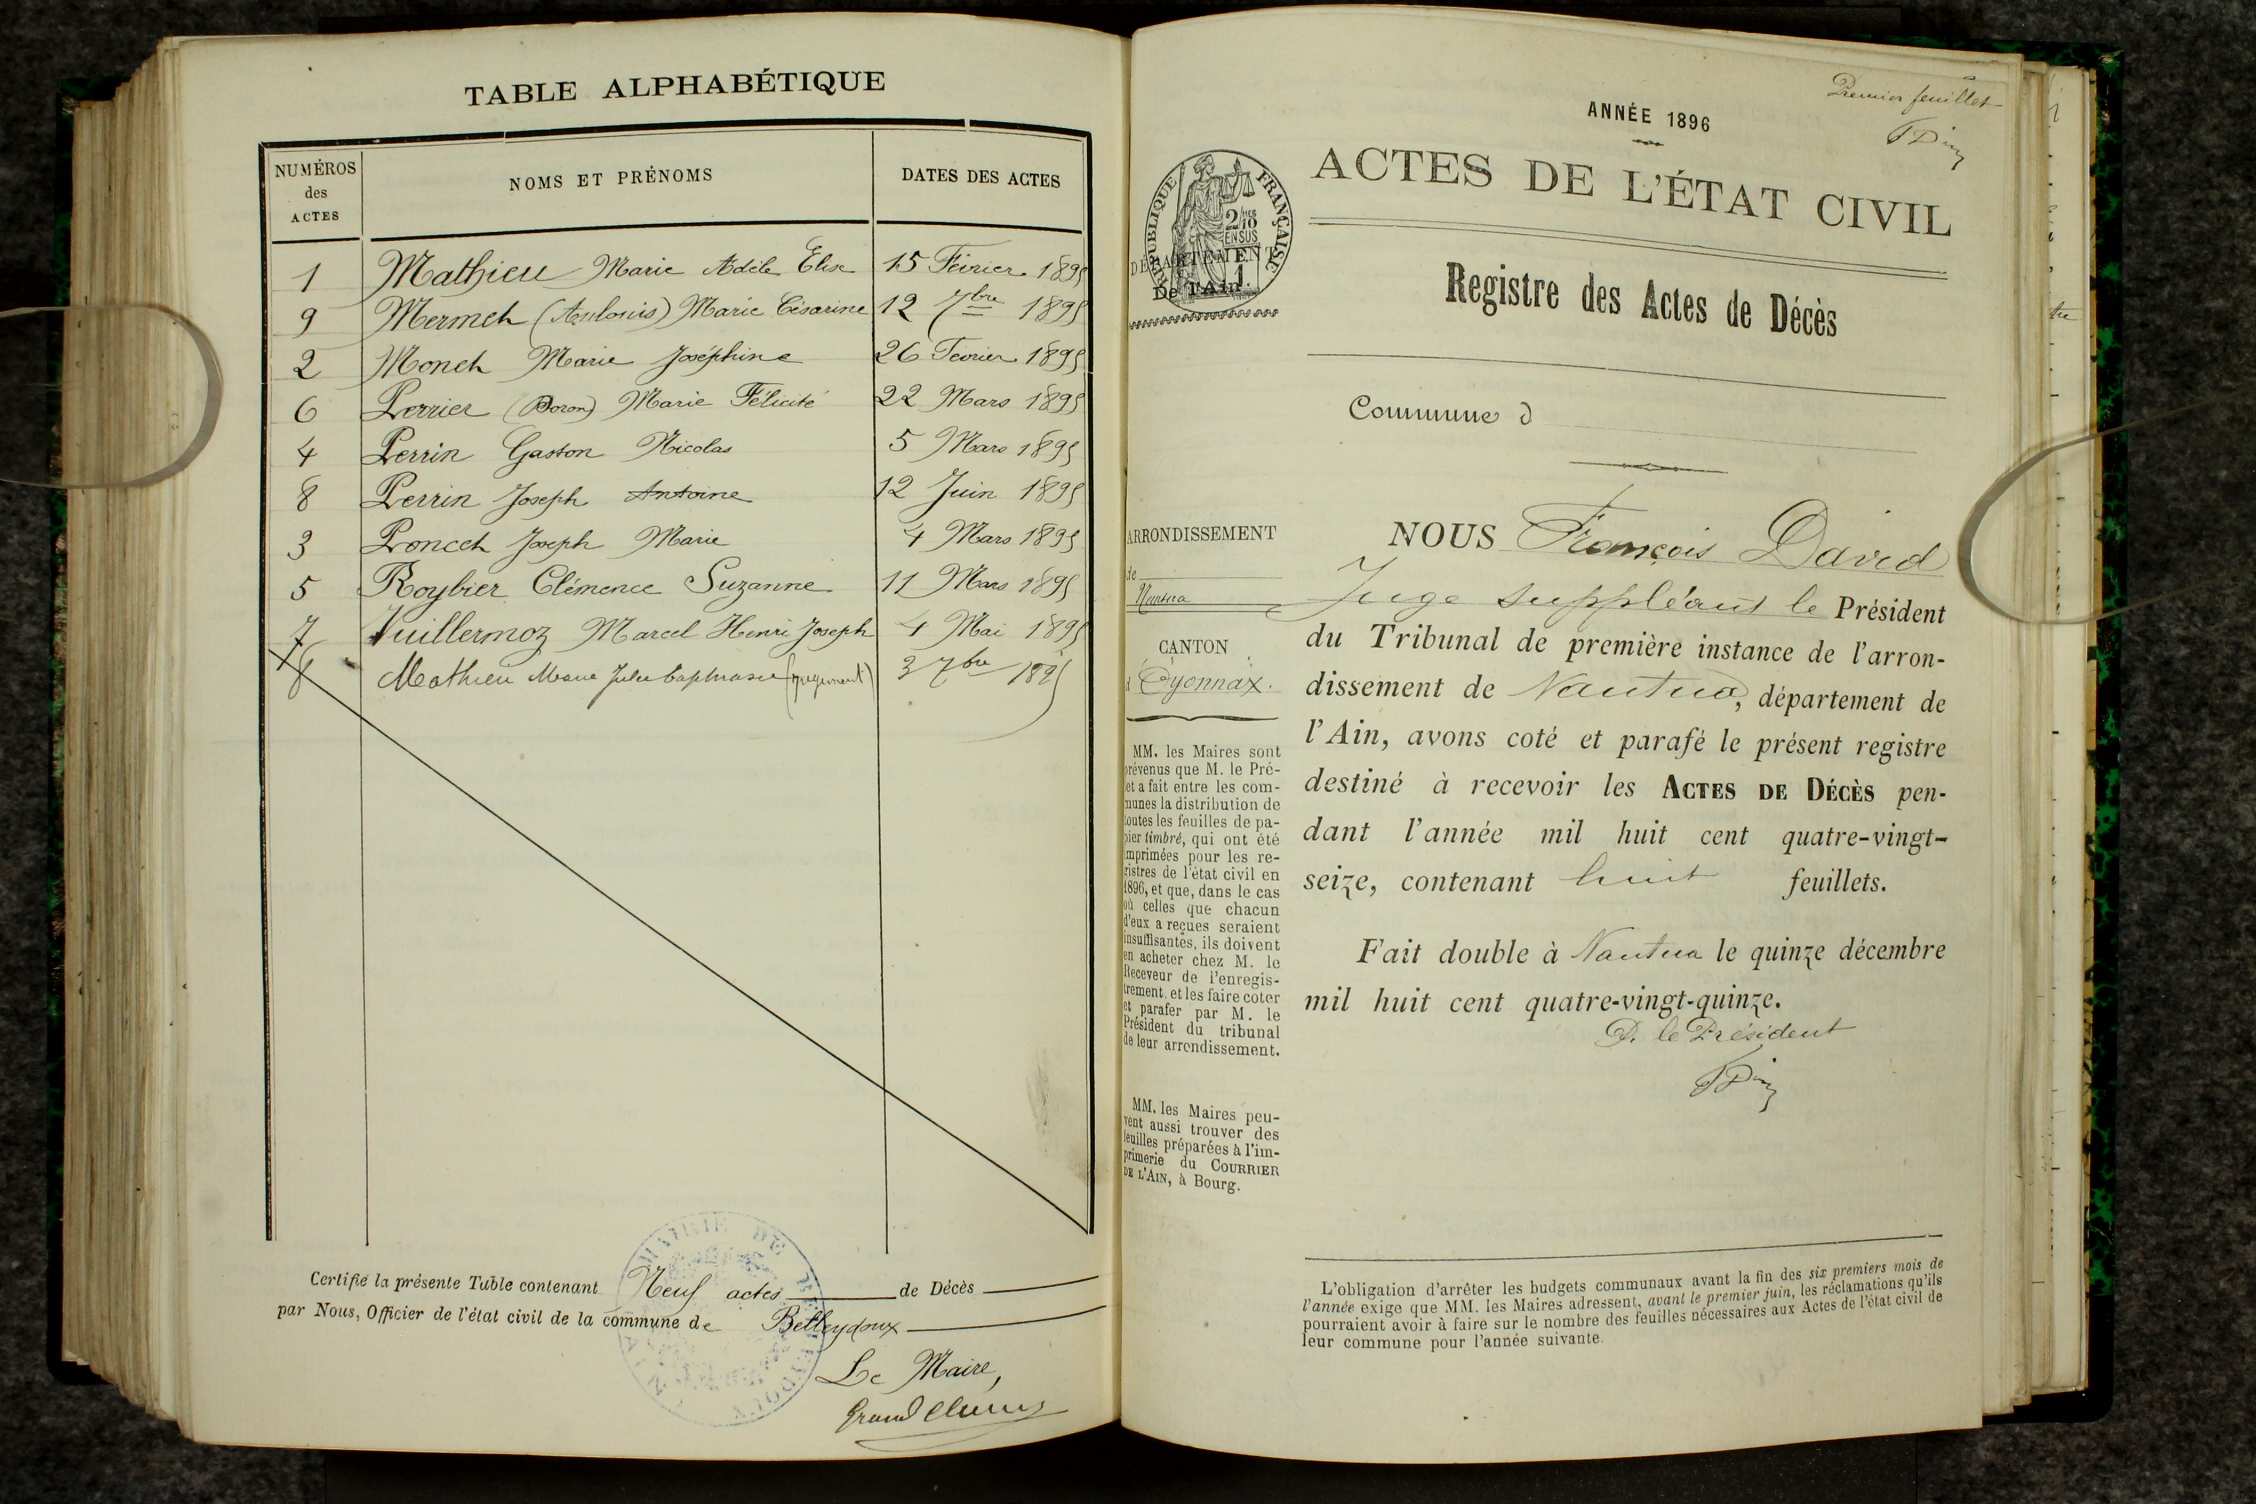 TABLE ALPHABÉTIQUE
NUMÉROS des ACTES NOMS ET PRÉNOMS DATES DES ACTES
1 Mathieu Marie Adèle Elise 15 Février 1895
9 Mermet Marie Césarine 12 7bre 1895
2 Monet Marie Joséphine 26 Février 1895
6 Perrier (Boron) Marie Félicité 22 Mars 1895
4 Perrin Gaston Nicolas 5 Mars 1895
8 Perrin Joseph Antoine 12 Juin 1895
3 Poncet Joseph Marie 4 Mars 1895
5 Roybier Clémence Suzanne 11 Mars 1895
7 Vuillermoz Marcel Henri Joseph 4 Mai 1895
8 Mathieu Marie Julie Euphrasie 3 7bre 1895
Certifié la présente Table contenant Neuf actes de Décès
par Nous, Officier de l'état civil de la commune de Belleydoux
Le Maire,
Grand Clément
MAIRIE DE BELLEYDOUX
AIN
Premier feuillet
ANNÉE 1896
ACTES DE L'ÉTAT CIVIL
RÉPUBLIQUE FRANÇAISE
2/10 EN SUS
DÉPARTEMENT
De l'Ain.
Registre des Actes de Décès
Commune d
ARRONDISSEMENT
de
Nantua
CANTON
d'Oyonnax.
MM. les Maires sont
prévenus que M. le Pré-
fet a fait entre les com-
munes la distribution de
toutes les feuilles de pa-
pier timbré, qui ont été
imprimées pour les re-
gistres de l'état civil en
1896, et que, dans le cas
où celles que chacun
d'eux a reçues seraient
insuffisantes, ils doivent
en acheter chez M. le
Receveur de l'enregis-
trement, et les faire coter
et parafer par M. le
Président du tribunal
de leur arrondissement.
MM. les Maires peu-
vent aussi trouver des
feuilles préparées à l'im-
primerie du COURRIER
DE L'AIN, à Bourg.
NOUS François David
Juge suppléant le Président
du Tribunal de première instance de l'arron-
dissement de Nantua, département de
l'Ain, avons coté et parafé le présent registre
destiné à recevoir les ACTES DE DÉCÈS pen-
dant l'année mil huit cent quatre-vingt-
seize, contenant huit feuillets.
Fait double à Nantua le quinze décembre
mil huit cent quatre-vingt-quinze.
P. le Président
L'obligation d'arrêter les budgets communaux avant la fin des six premiers mois de
l'année exige que MM. les Maires adressent, avant le premier juin, les réclamations qu'ils
pourraient avoir à faire sur le nombre des feuilles nécessaires aux Actes de l'état civil de
leur commune pour l'année suivante.